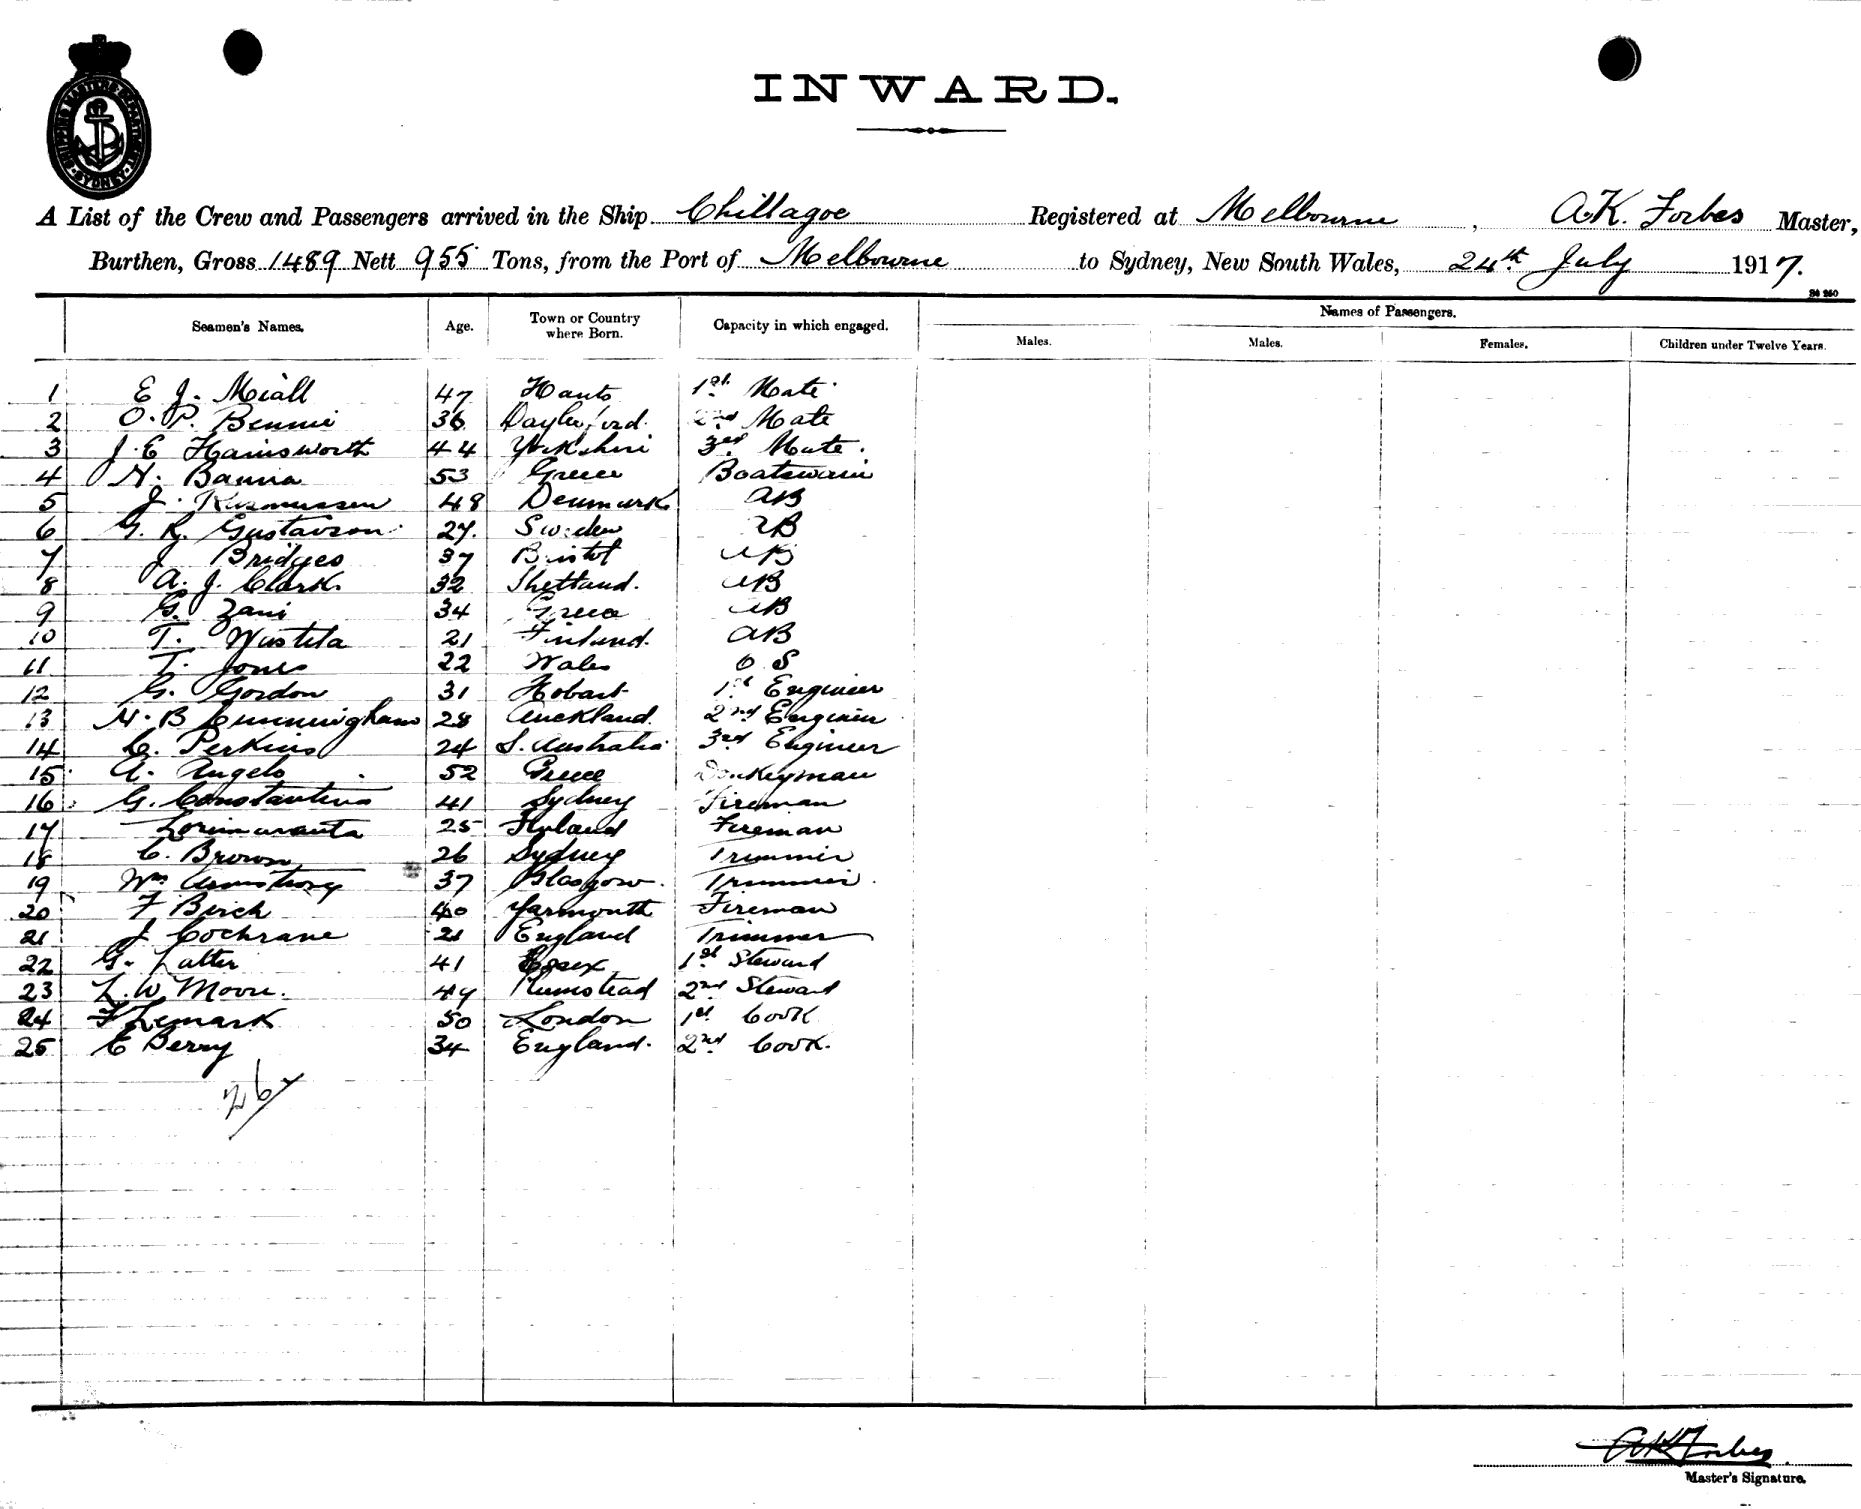 SHIPPING MASTERS DEPARTMENT SYDNEY
INWARD.
A List of the Crew and Passengers arrived in the Ship Chillagoe Registered at Melbourne, A.K. Forbes Master,
Burthen, Gross 1489 Nett 955 Tons, from the Port of Melbourne to Sydney, New South Wales, 24th July 1917.
Names of Passengers.
Seamen's Names. Age. Town or Country where Born. Capacity in which engaged. Males. Males. Females. Children under Twelve Years.
1 E J. Miall 47 Hants 1st Mate
2 O. P. Bennie 36 2nd Mate
3 J. E Hainsworth 44 Yorkshire 3rd Mate.
4 N. Banna 53 Greece Boatswain
5 J. Rasmussen 48 Denmark AB
6 G. R. Gustavson 27. Sweden AB
7 J Bridges 37 Bristol AB
8 A. J. Clark 32 Shetland. AB
9 G. Zani 34 Greece AB
10 T. 21 Finland. AB
11 T. Jones 22 Wales O S
12 G. Gordon 31 Hobart 1st Engineer
13 N. B Cunningham 28 Auckland. 2nd Engineer
14 C. Perkins 24 S. Australia 3rd Engineer
15 A. Angelo 52 Greece Donkeyman
16 G. Constantino 41 Sydney Fireman
17 25 Fireman
18 C. Brown 26 Sydney Trimmer
19 Wm Armstrong 37 Glasgow. Trimmer.
20 F Birch 40 Yarmouth Fireman
21 J Cochrane 21 England Trimmer
22 G. Latter 41 Essex 1st Steward
23 L. W Moore. 49 Plumstead 2nd Steward
24 F Lemark 50 London 1st Cook
25 E Berry 34 England. 2nd Cook.
26
AK Forbes
Master's Signature.